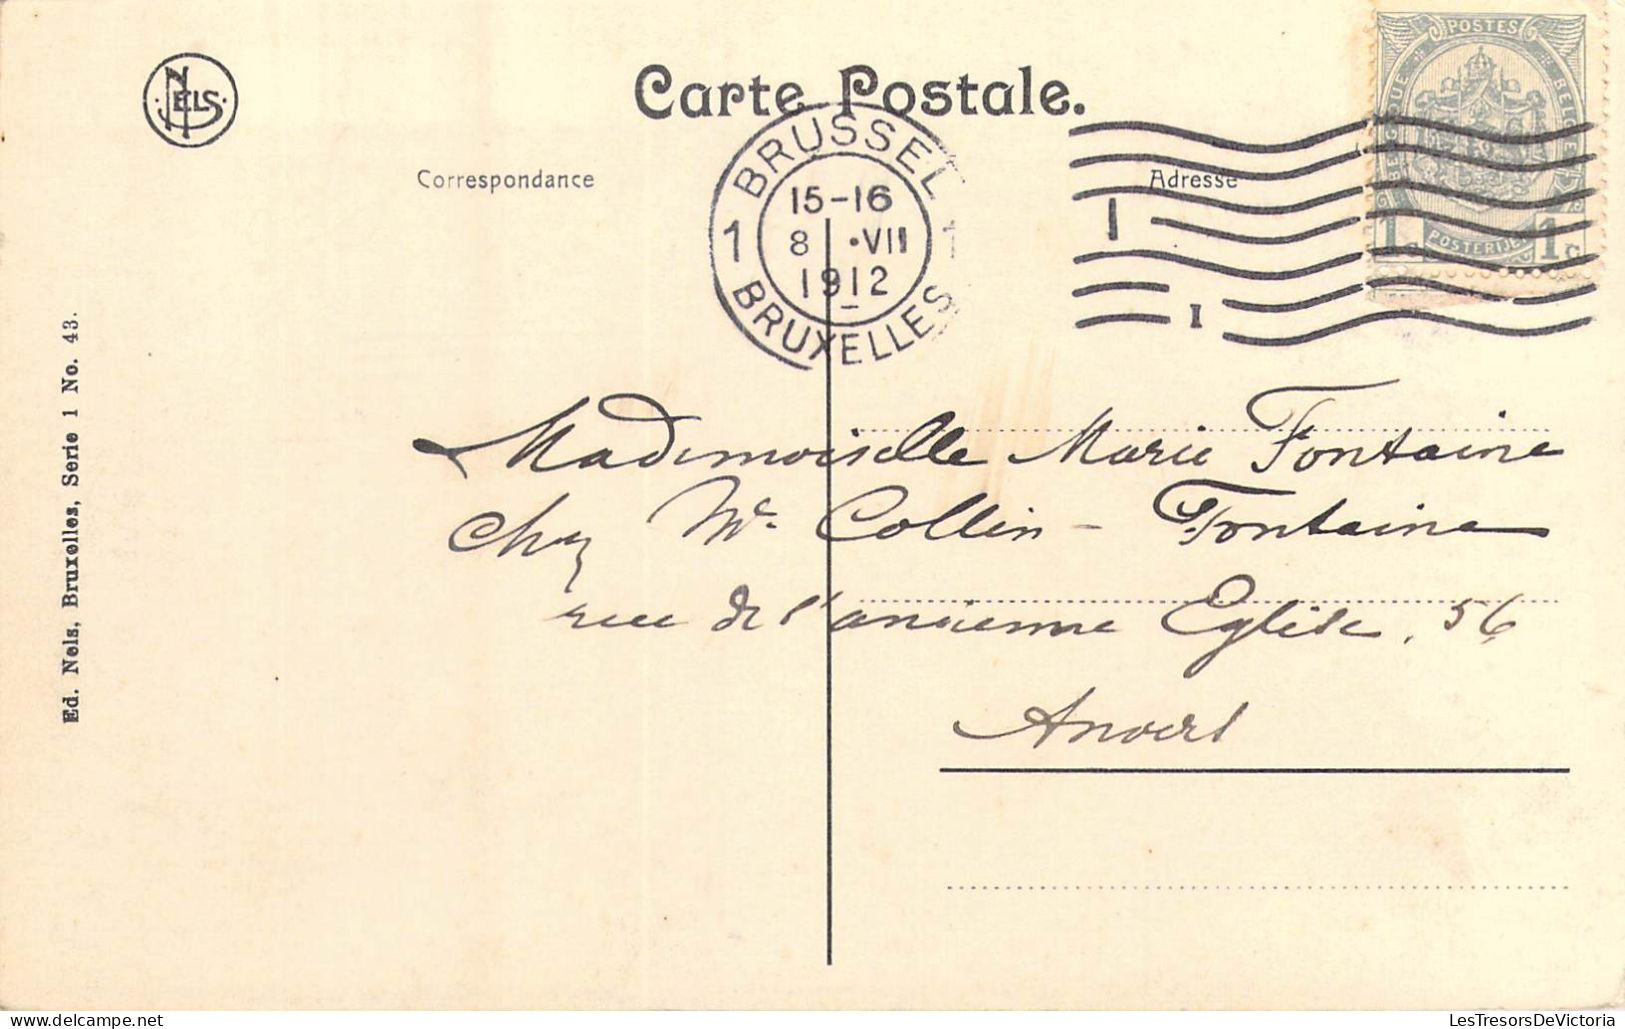 NELS
Carte Postale.
Correspondance
Adresse
BRUSSEL
15-16
1 8 •VII 1
1912
BRUXELLES
1
1
POSTES
BELGIQUE
BELGIË
1c POSTERIJEN 1c
Mademoiselle Marie Fontaine
chez Mr Collin - Fontaine
rue de l'ancienne Eglise, 56
Anvers
Ed. Nels, Bruxelles, Serie 1 No. 43.
LesTresorsDeVictoria